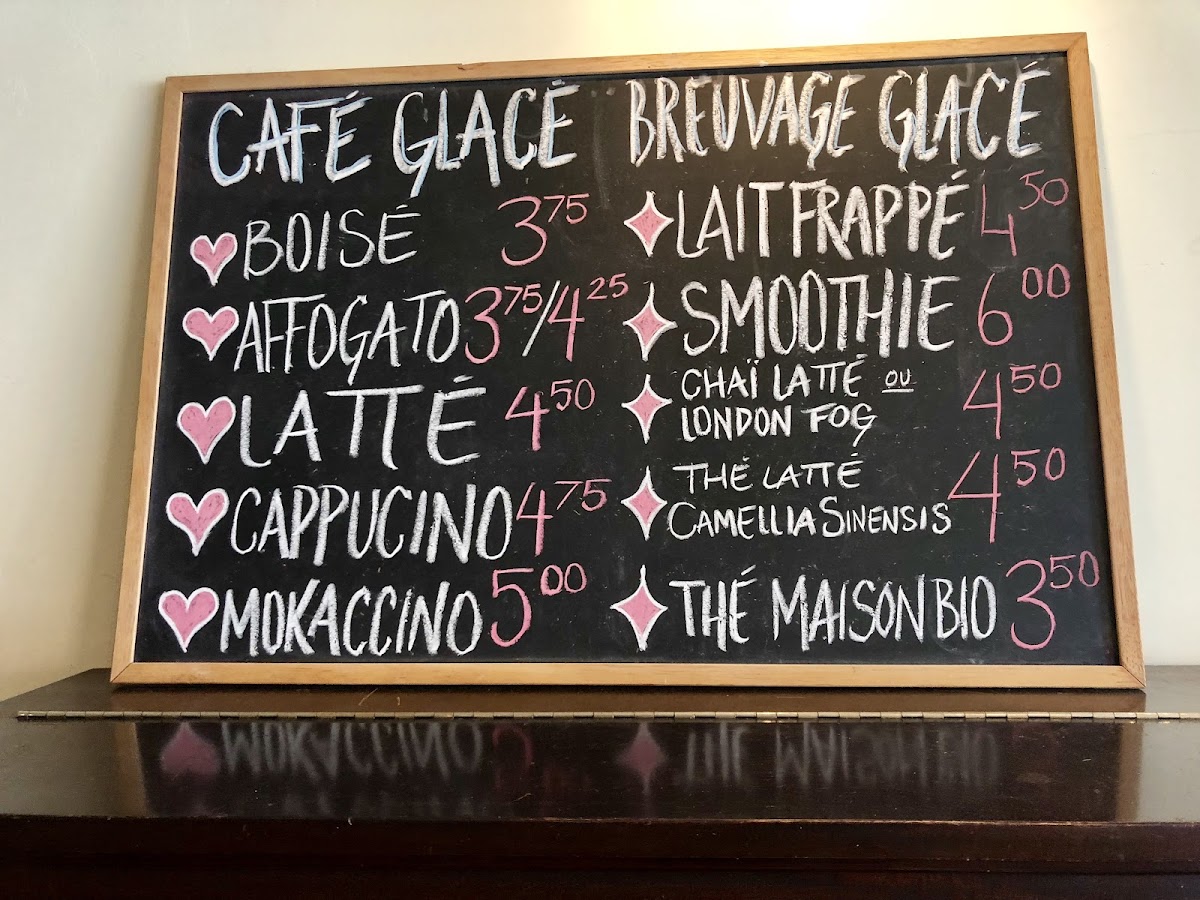 CAFÉ GLACÉ
BOISÉ 3.75
AFFOGATO 3.75/4.25
LATTÉ 4.50
CAPPUCINO 4.75
MOKACCINO 5.00
BREUVAGE GLACÉ
LAIT FRAPPÉ 4.50
SMOOTHIE 6.00
CHAÏ LATTÉ OU
LONDON FOG 4.50
THÉ LATTÉ
CAMELLIA SINENSIS 4.50
THÉ MAISON BIO 3.50